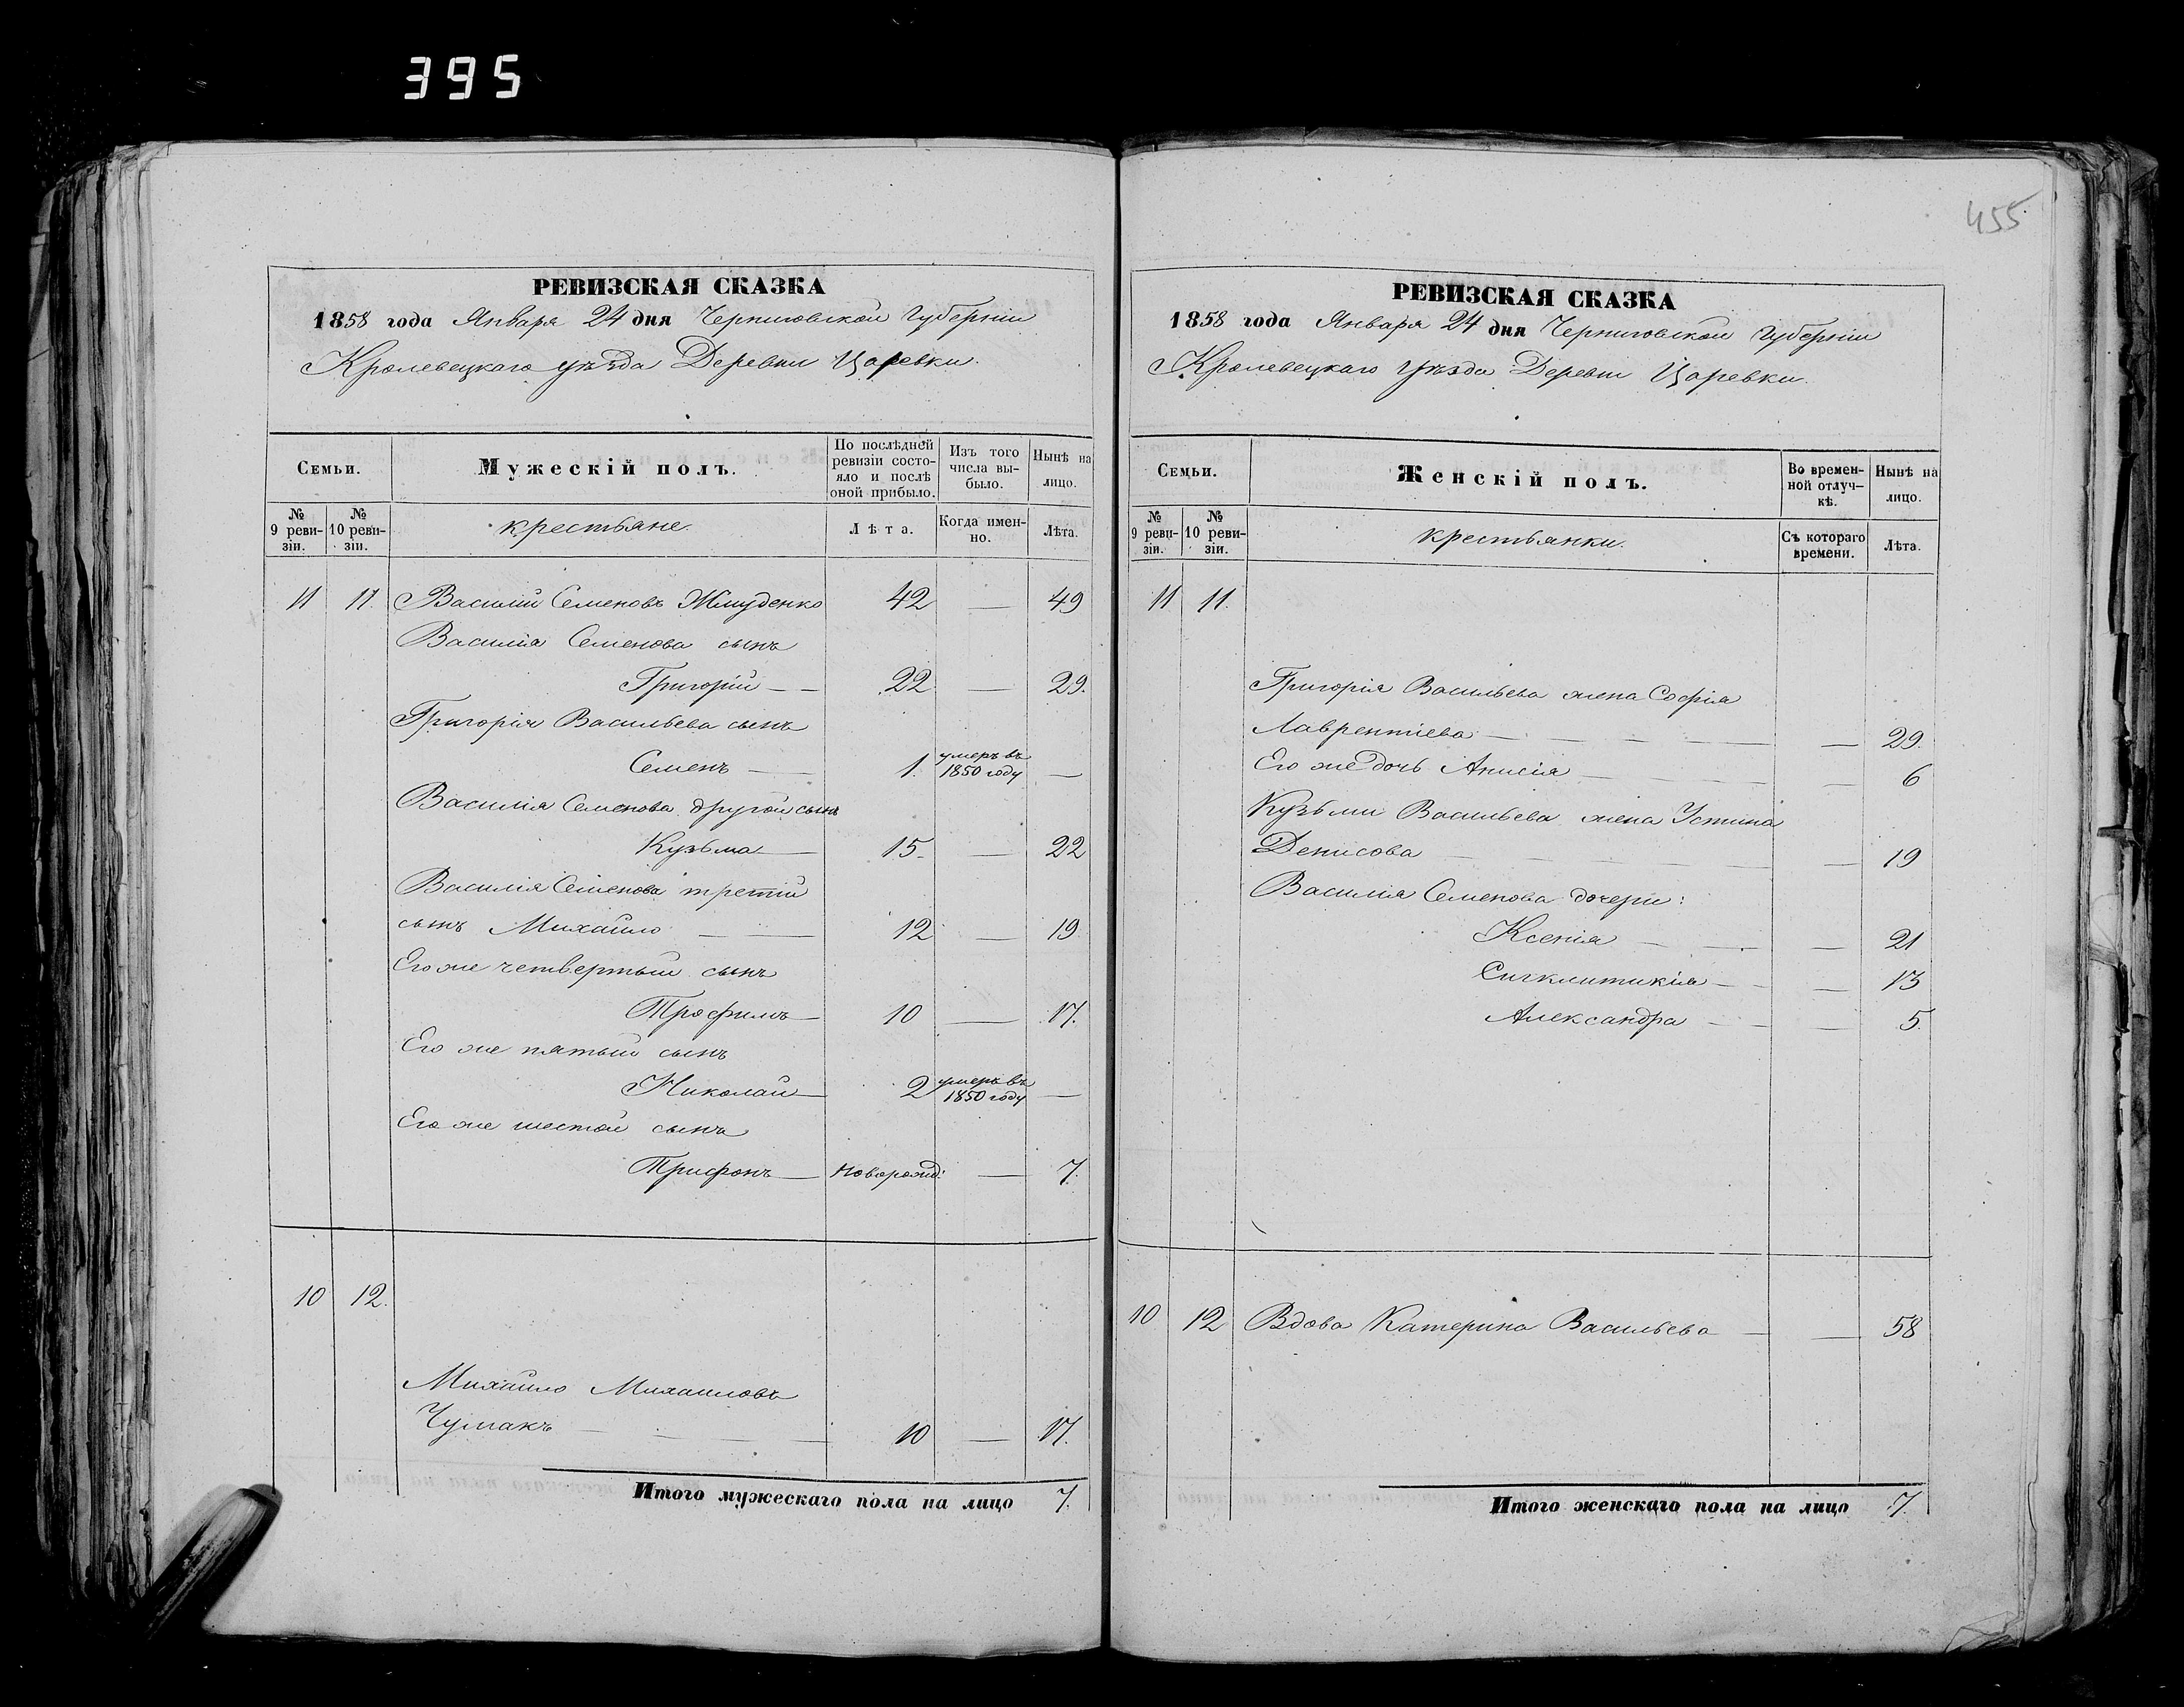 395
РЕВИЗСКАЯ СКАЗКА
1858 года Января 24 дня Черниговской Губерніи
Кролевецкаго уѣзда Деревни Царевки.
Семьи.
Мужескій полъ.
По послѣдней ревизіи состояло и послѣ оной прибыло.
Изъ того числа выбыло.
Нынѣ на лицо.
№ 9 ревизіи.
№ 10 ревизіи.
крестьяне.
Лѣта.
Когда именно.
Лѣта.
11 11. Василій Семеновъ Жмуденко 42 — 49
Василія Семенова сынъ
Григорій — — 22 — 29.
Григорія Васильева сынъ
Семенъ — 1. умеръ въ 1850 году —
Василія Семенова другой сынъ
Кузьма — 15. — 22
Василія Семенова третій
сынъ Михайло — — 12 — 19
Его же четвертый сынъ
Трофимъ — 10 — 17.
Его же пятый сынъ
Николай — 2 умеръ въ 1850 году —
Его же шестой сынъ
Трифонъ — новорожд: — 7.
10 12.
Михайло Михайловъ
Чумакъ — — — — 10 — 17.
Итого мужескаго пола на лицо 7.
455
РЕВИЗСКАЯ СКАЗКА
1858 года Января 24 дня Черниговской Губерніи
Кролевецкаго Уѣзда Деревни Царевки.
Семьи.
Женскій полъ.
Во временной отлучкѣ.
Нынѣ на лицо.
№ 9 ревизіи.
№ 10 ревизіи.
крестьянки.
Съ котораго времени.
Лѣта.
11 11.
Григорія Васильева жена Софія
Лаврентіева — — — — — 29.
Его же дочь Анисія — — — — 6
Кузьмы Васильева жена Устина
Денисова — — — — — 19
Василія Семенова дочери:
Ксенія — — — 21
Сигклитикія — — — 13
Александра — — — 5.
10 12 Вдова Катерина Васильева — — 58
Итого женскаго пола на лицо 7.